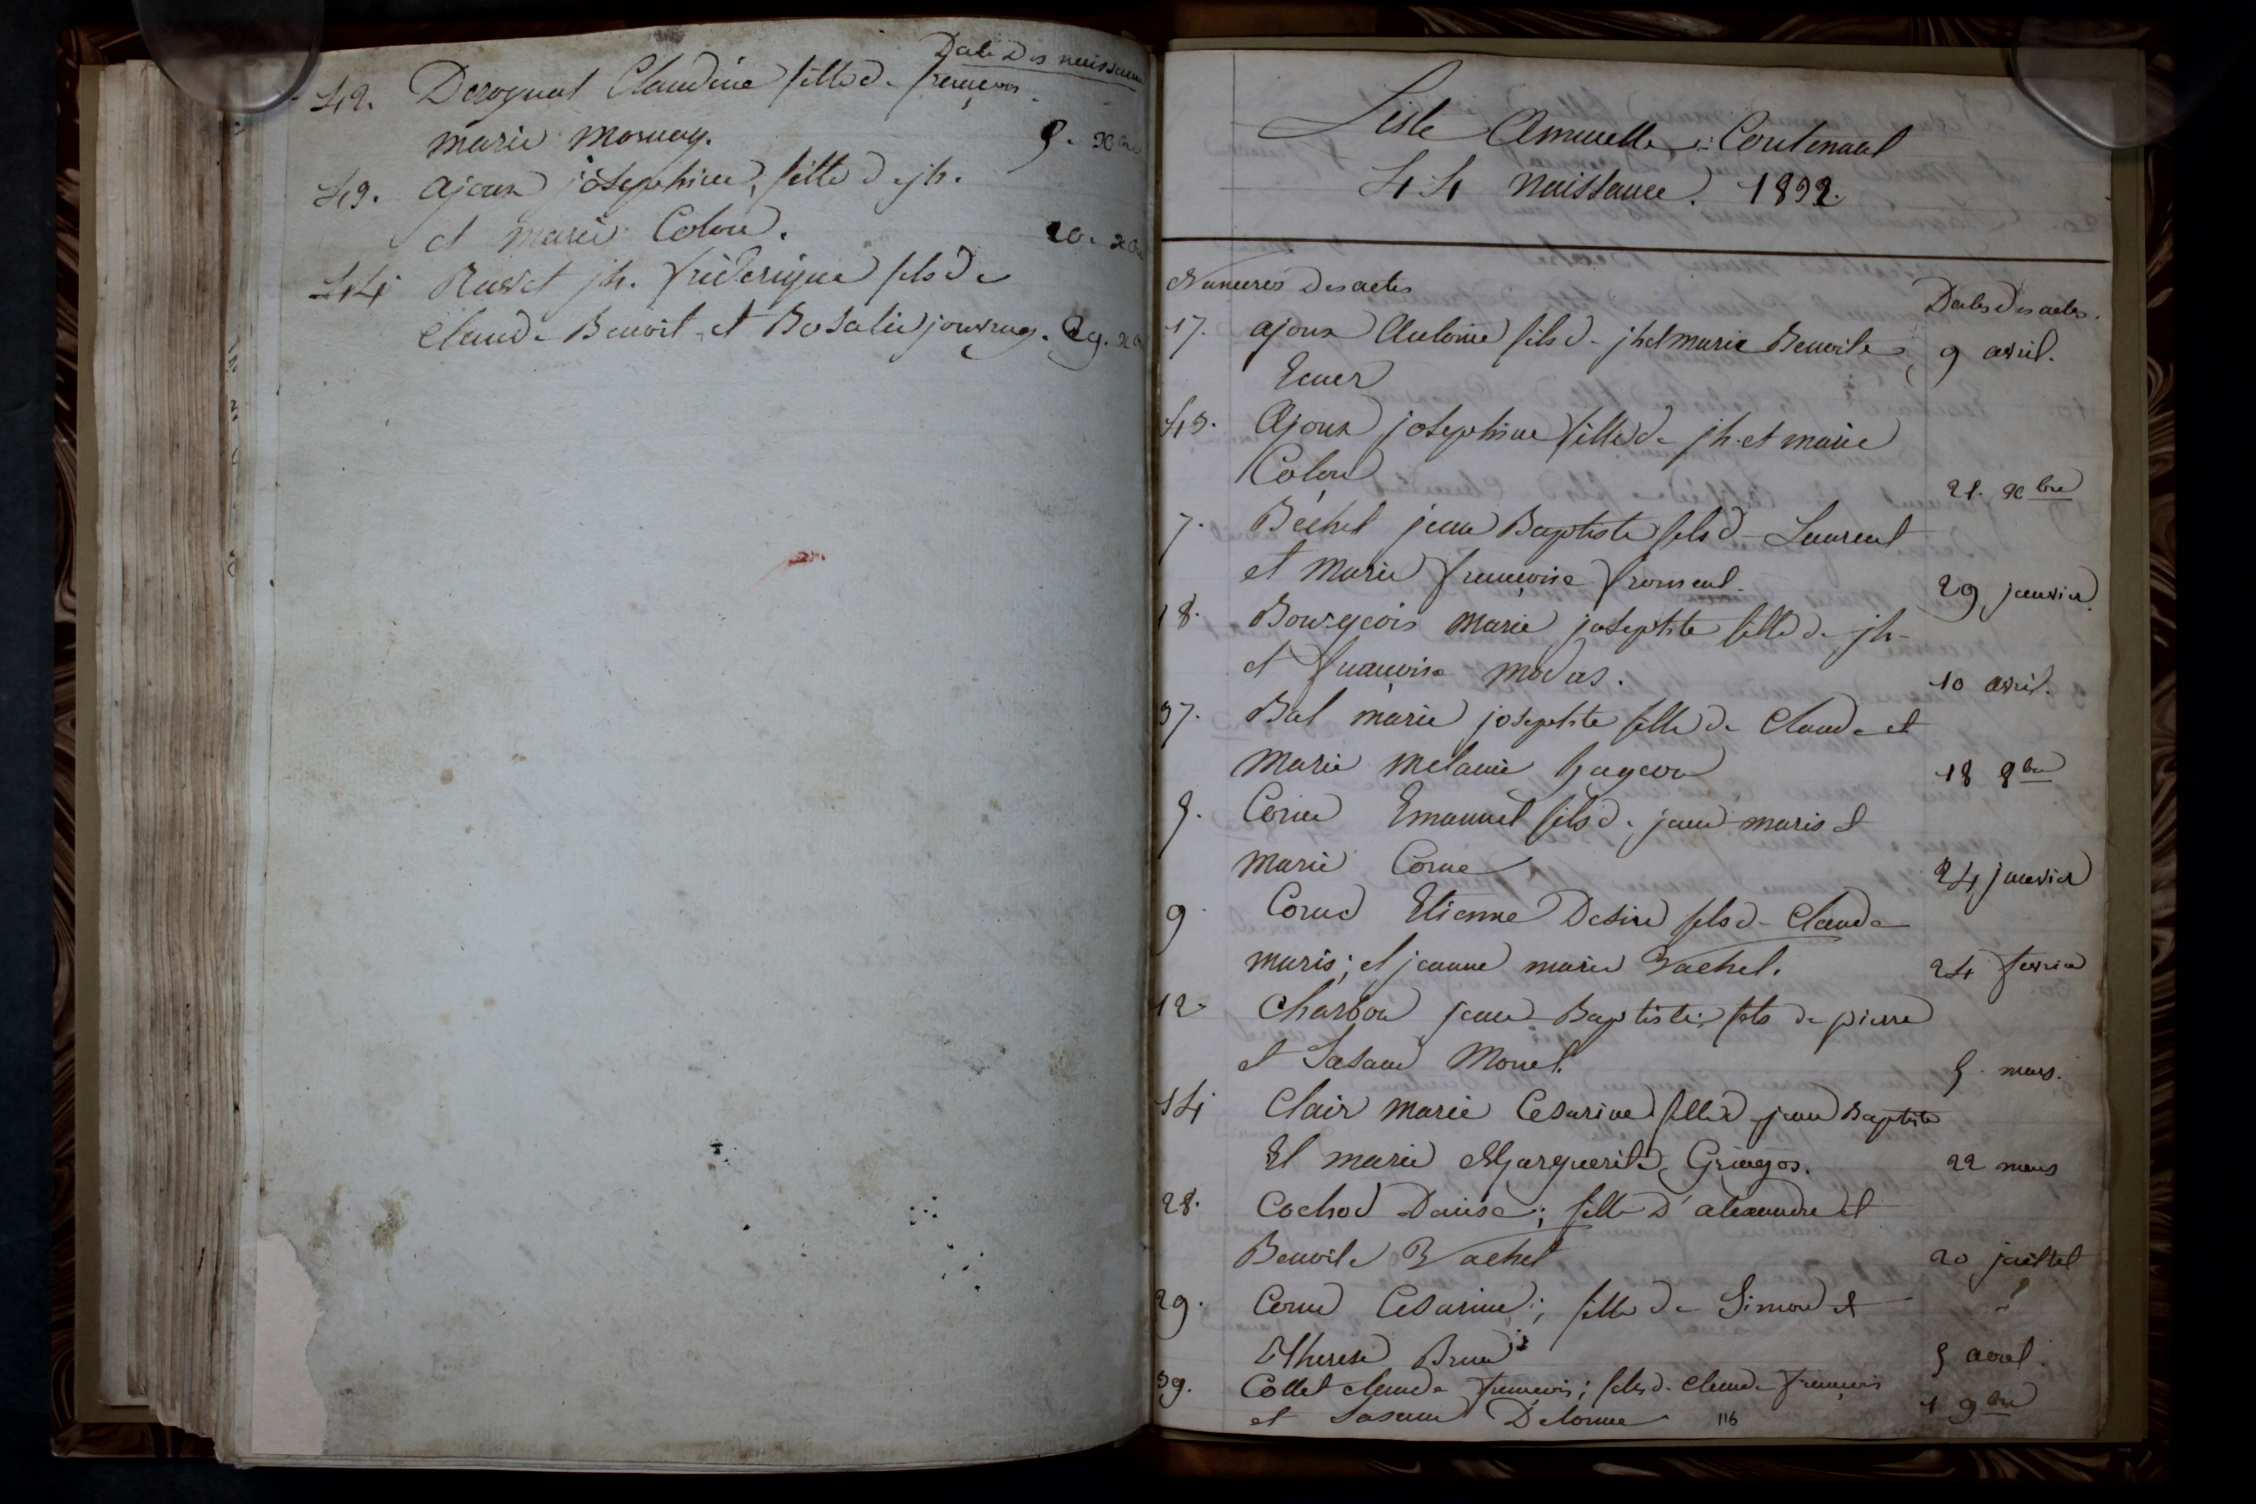 Date des naissance
42. Derognat Claudine fille de françois
marie Mornay. 9. xbre
43. ajoux josephine, fille de jh.
et marie Colon. 20. xbre
44 Ravet jh. frederique fils de
Claude Benoit et Rosalie jouvray. 29. xbre
Liste Annuelle : Contenant
44 Naissance. 1832.
Numeres des actes
Dates des actes.
17. ajoux Antoine fils de jh et marie Benoite 9 avril.
43. Ajoux josephine fille de jh. et marie
Colon 21. xbre
7. Béchet jean Baptiste fils de Laurent
et Marie françoise froment. 29 janvier
18. Bourgeois Marie josephte fille de jh
et françoise modas. 10 avril.
37. Bal marie josephte fille de Claude et
Marie melanie 18 8bre
Corne Emanuel fils de jean marie et
Marie Corne 24 janvier
9. Corne Etienne Desire fils de Claude
marie; et jeanne marie Vachet. 24 fevrier
12. Charbon jean Baptiste; fils de pierre
et Susanne Monet. 5. mars.
14 Clair marie Cesarine fille de jean Baptiste
Et marie Marguerite Gringos. 22 mars
28. Cochod Denise; fille d'alexandre et
Benoite Vachet 20 juillet
29. Corne Cesarine; fille de Simon et
Etherese Brun 5 avril.
39. Collet claude françois; fils de claude françois
et Susanne Delorme 1 9bre
116